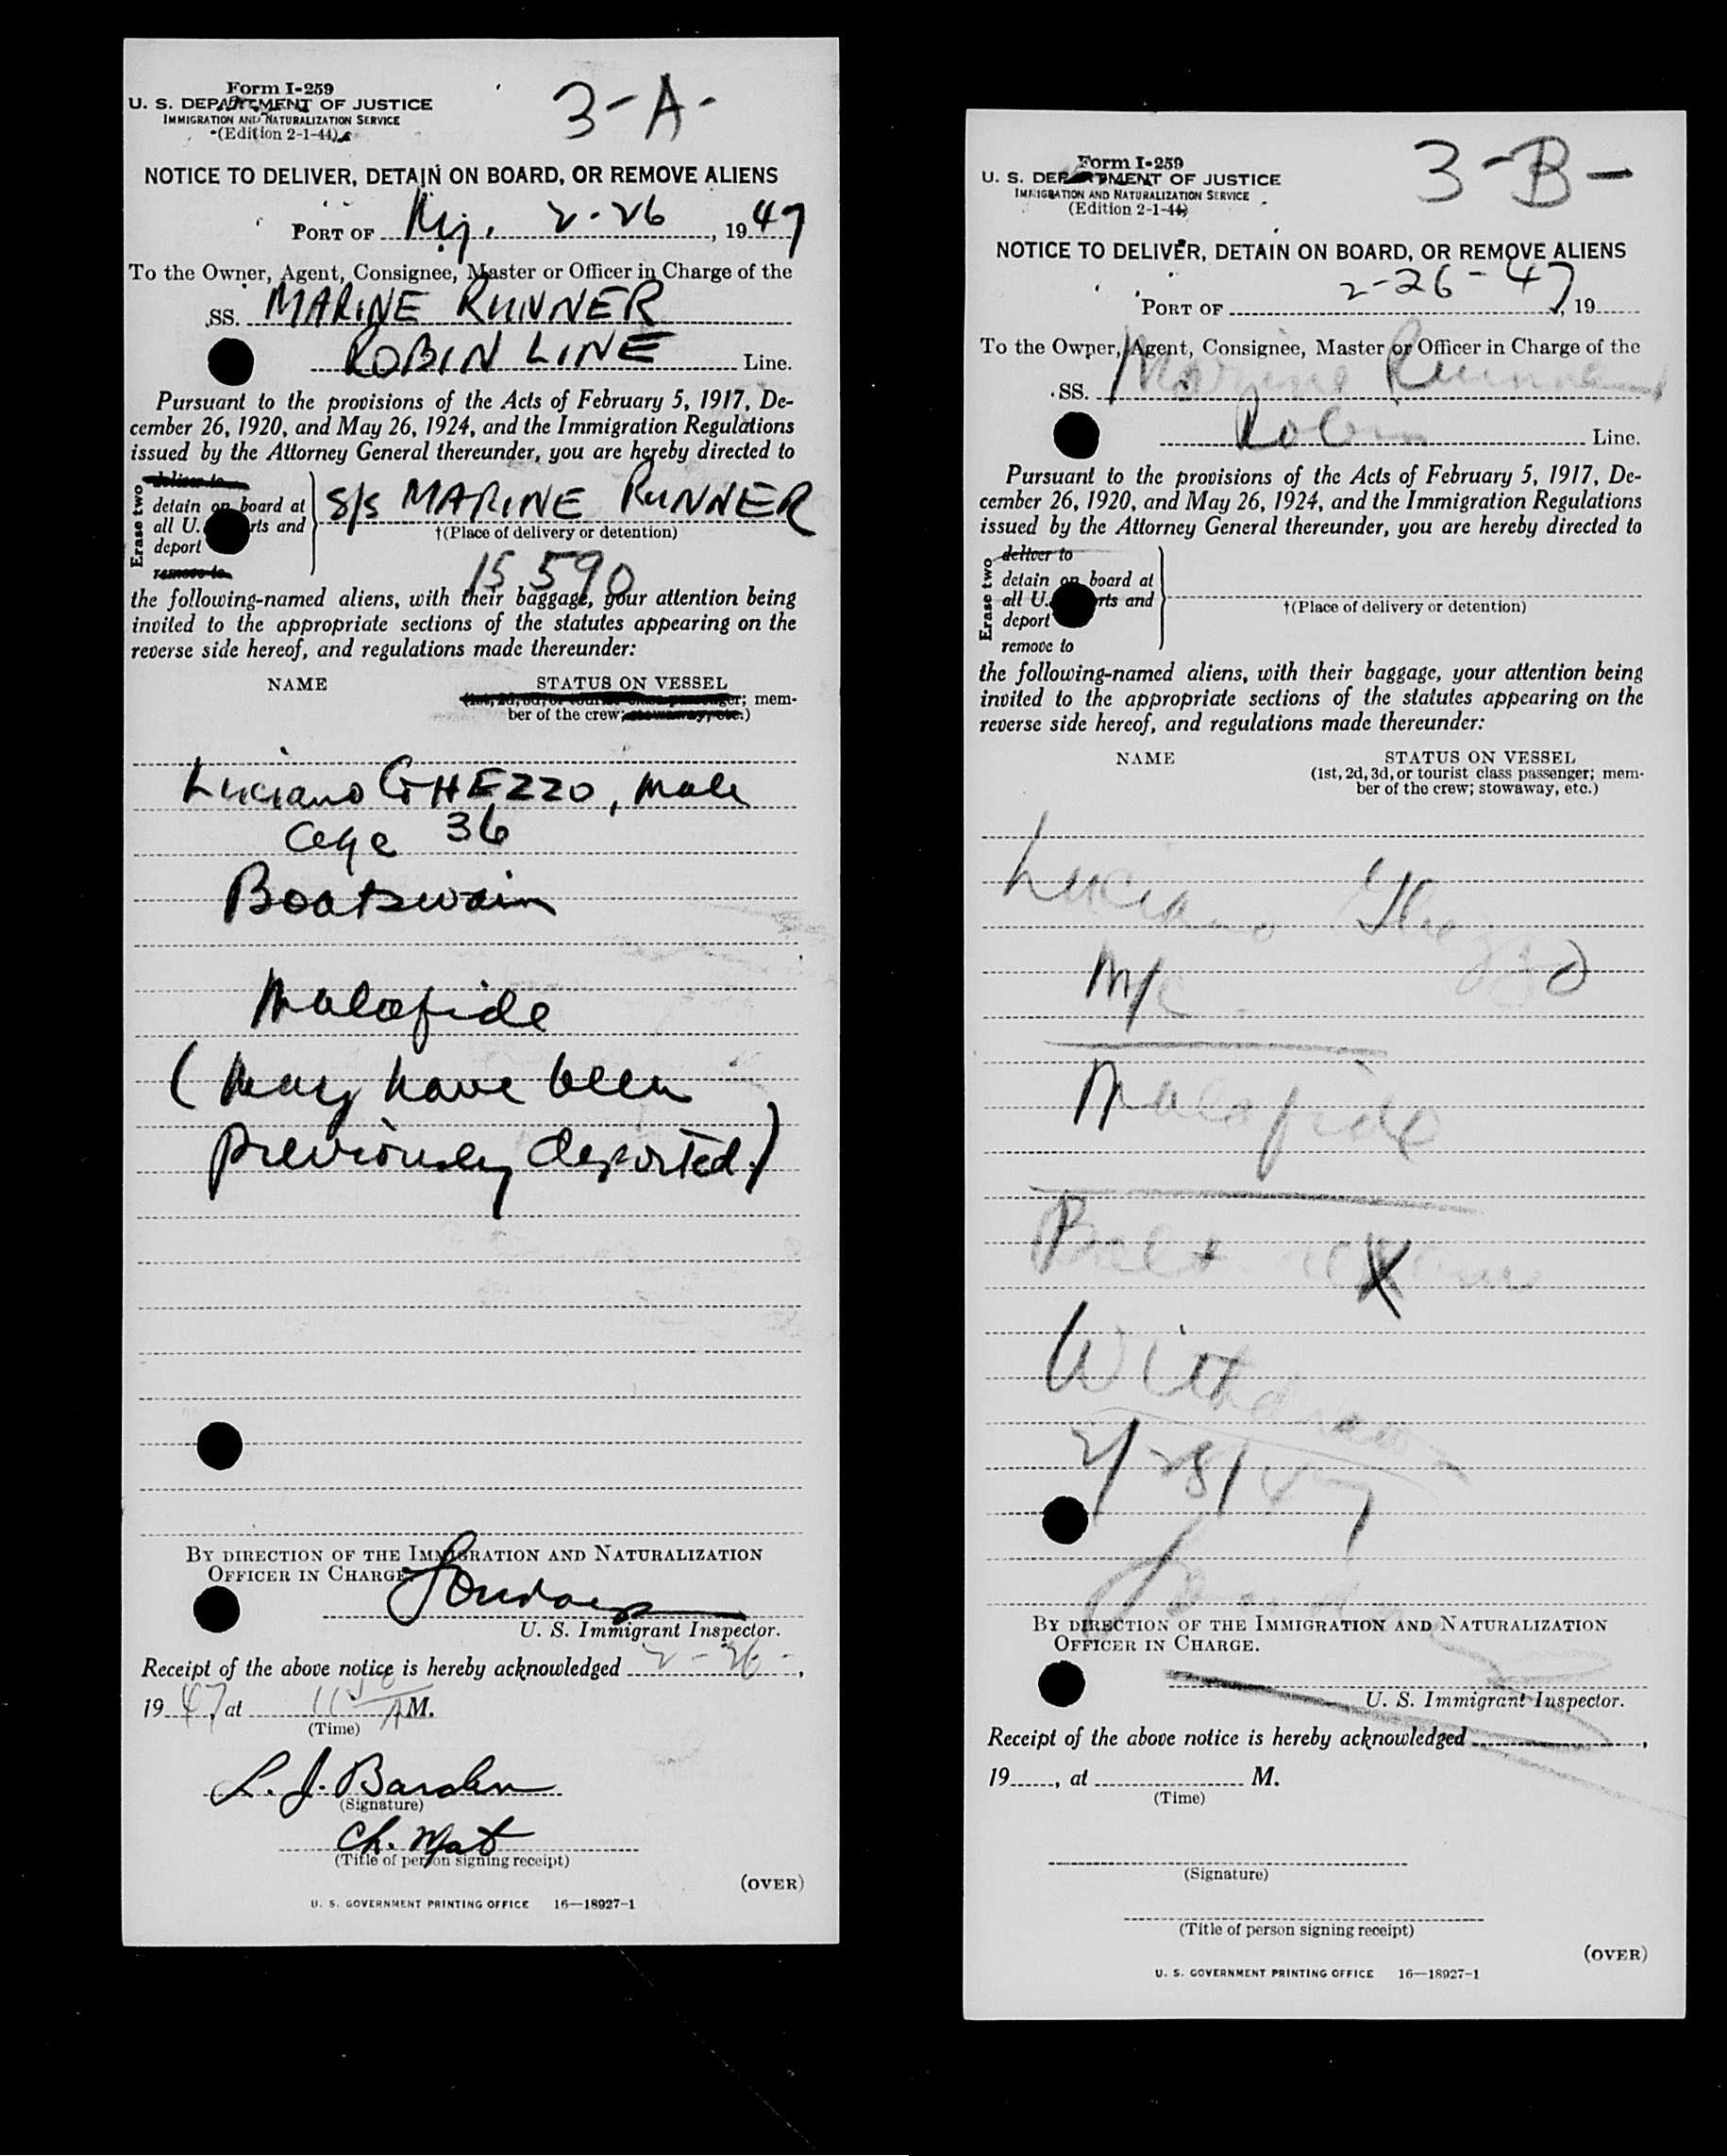 3-A-
Form I-259
U. S. DEPARTMENT OF JUSTICE
IMMIGRATION AND NATURALIZATION SERVICE
(Edition 2-1-44)
NOTICE TO DELIVER, DETAIN ON BOARD, OR REMOVE ALIENS
PORT OF N.Y. 2-26, 1947
To the Owner, Agent, Consignee, Master or Officer in Charge of the
SS. MARINE RUNNER
ROBIN LINE Line.
Pursuant to the provisions of the Acts of February 5, 1917, De-
cember 26, 1920, and May 26, 1924, and the Immigration Regulations
issued by the Attorney General thereunder, you are hereby directed to
Erase two
deliver to
detain on board at
all U. rts and
deport
remove to
S/S MARINE RUNNER
†(Place of delivery or detention)
15 590
the following-named aliens, with their baggage, your attention being
invited to the appropriate sections of the statutes appearing on the
reverse side hereof, and regulations made thereunder:
NAME STATUS ON VESSEL
(1st, 2d, 3d, or tourist class passenger; mem-
ber of the crew; stowaway, etc.)
Luciano GHEZZO, Male
age 36
Boatswain
Malafide
(May have been
previously deported.)
BY DIRECTION OF THE IMMIGRATION AND NATURALIZATION
OFFICER IN CHARGE.
U. S. Immigrant Inspector.
Receipt of the above notice is hereby acknowledged 2-26-,
1947, at 11 50 A M.
(Time)
L. J. Barden
(Signature)
Ch. Mat
(Title of person signing receipt)
(OVER)
U. S. GOVERNMENT PRINTING OFFICE 16—18927-1
3-B-
Form I-259
U. S. DEPARTMENT OF JUSTICE
IMMIGRATION AND NATURALIZATION SERVICE
(Edition 2-1-44)
NOTICE TO DELIVER, DETAIN ON BOARD, OR REMOVE ALIENS
2-26-47
PORT OF , 19
To the Owner, Agent, Consignee, Master or Officer in Charge of the
SS. Marine Runner
Robin Line.
Pursuant to the provisions of the Acts of February 5, 1917, De-
cember 26, 1920, and May 26, 1924, and the Immigration Regulations
issued by the Attorney General thereunder, you are hereby directed to
Erase two
deliver to
detain on board at
all U. rts and
deport
remove to
†(Place of delivery or detention)
the following-named aliens, with their baggage, your attention being
invited to the appropriate sections of the statutes appearing on the
reverse side hereof, and regulations made thereunder:
NAME STATUS ON VESSEL
(1st, 2d, 3d, or tourist class passenger; mem-
ber of the crew; stowaway, etc.)
Luciano Ghezzo
M/C
Malafide
X
Withdrawn
2/28/47
BY DIRECTION OF THE IMMIGRATION AND NATURALIZATION
OFFICER IN CHARGE.
U. S. Immigrant Inspector.
Receipt of the above notice is hereby acknowledged ,
19 , at M.
(Time)
(Signature)
(Title of person signing receipt)
(OVER)
U. S. GOVERNMENT PRINTING OFFICE 16—18927-1